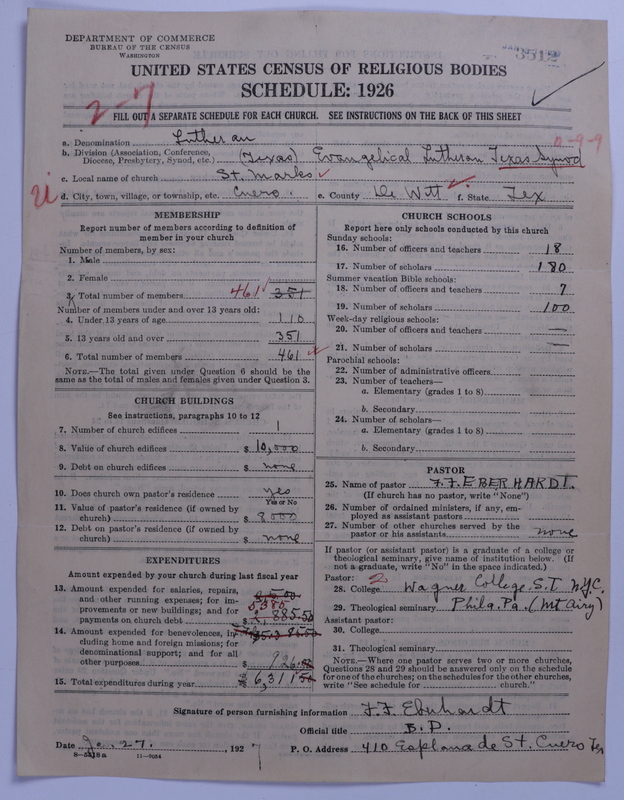 DEPARTMENT OF COMMERCE
BUREAU OF THE CENSUS
WASHINGTON
3512
UNITED STATES CENSUS OF RELIGIOUS BODIES
SCHEDULE: 1926
2-7
FILL OUT A SEPARATE SCHEDULE FOR EACH CHURCH. SEE INSTRUCTIONS ON THE BACK OF THIS SHEET
0-9-9
a. Denomination Lutheran
b. Division (Association, Conference, Diocese, Presbytery, Synod, etc.) (Texas) Evangelical Lutheran Texas Synod
c. Local name of church St. Marks
d. City, town, village, or township, etc. Cuero. e. County De Witt f. State Tex
MEMBERSHIP
Report number of members according to definition of
member in your church
Number of members, by sex:
1. Male
2. Female
3. Total number of members 461 351
Number of members under and over 13 years old:
4. Under 13 years of age 110
5. 13 years old and over 351
6. Total number of members 461
NOTE.—The total given under Question 6 should be the
same as the total of males and females given under Question 3.
CHURCH BUILDINGS
See instructions, paragraphs 10 to 12
7. Number of church edifices 1
8. Value of church edifices $ 10,000
9. Debt on church edifices $ none
10. Does church own pastor's residence yes
Yes or No
11. Value of pastor's residence (if owned by
church) $ 8000
12. Debt on pastor's residence (if owned by
church) $ none
EXPENDITURES
Amount expended by your church during last fiscal year
13. Amount expended for salaries, repairs,
and other running expenses; for im-
provements or new buildings; and for
payments on church debt 5385
14. Amount expended for benevolences, in-
cluding home and foreign missions; for
denominational support; and for all
other purposes $ 926
15. Total expenditures during year $ 6,311
CHURCH SCHOOLS
Report here only schools conducted by this church
Sunday schools:
16. Number of officers and teachers 18
17. Number of scholars 180
Summer vacation Bible schools:
18. Number of officers and teachers 7
19. Number of scholars 100
Week-day religious schools:
20. Number of officers and teachers —
21. Number of scholars —
Parochial schools:
22. Number of administrative officers
23. Number of teachers—
a. Elementary (grades 1 to 8)
b. Secondary
24. Number of scholars—
a. Elementary (grades 1 to 8)
b. Secondary
PASTOR
25. Name of pastor F.F. EBERHARDT.
(If church has no pastor, write "None")
26. Number of ordained ministers, if any, em-
ployed as assistant pastors
27. Number of other churches served by the
pastor or his assistants none
If pastor (or assistant pastor) is a graduate of a college or
theological seminary, give name of institution below. (If
not a graduate, write "No" in the space indicated.)
Pastor: 2
28. College Wagner College. S.I. N.Y.C.
29. Theological seminary Phila. Pa. (Mt Airy)
Assistant pastor:
30. College
31. Theological seminary
NOTE.—Where one pastor serves two or more churches,
Questions 28 and 29 should be answered only on the schedule
for one of the churches; on the schedules for the other churches,
write "See schedule for church."
Signature of person furnishing information F. F. Eberhardt
Official title B.D.
Date Ja. 27. , 1927 P. O. Address 410 Esplanade St. Cuero Tex
8-5418a 11-9054